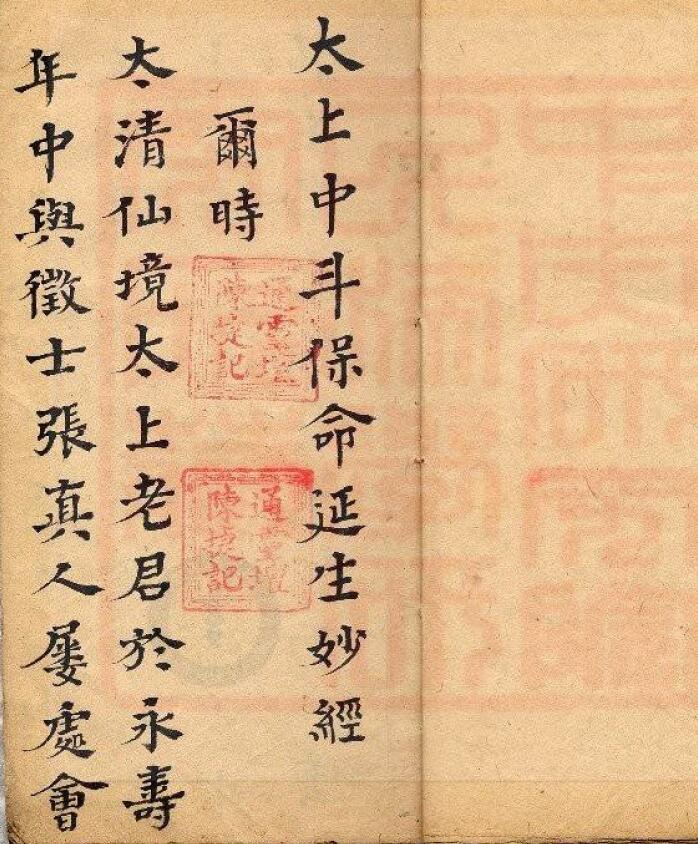 太上中斗保命延生妙經
爾時
太清仙境太上老君於永壽
年中與徵士張真人屢處會
陳捷記
陳捷記